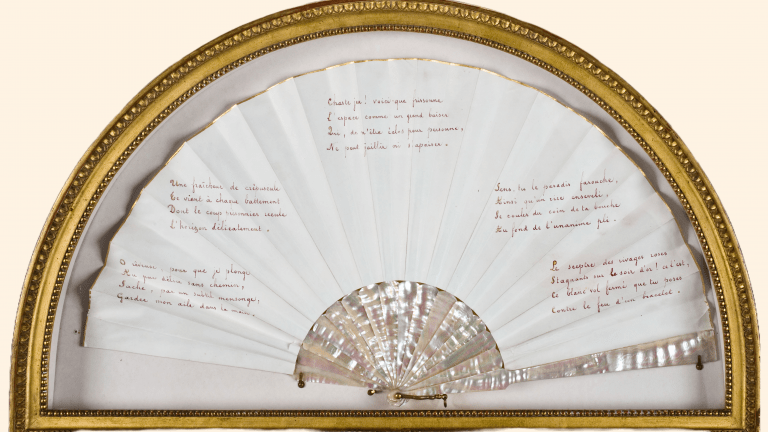 O rêveuse, pour que je plonge
Au pur délice sans chemin,
Sache, par un subtil mensonge,
Garder mon aile dans ta main.
Une fraîcheur de crépuscule
Te vient à chaque battement
Dont le coup prisonnier recule
L'horizon délicatement.
Chaste jeu ! voici que frissonne
L'espace comme un grand baiser
Qui, de n'être éclos pour personne,
Ne peut jaillir ni s'apaiser.
Sens-tu le paradis farouche,
Ainsi qu'un rire enseveli,
Se couler du coin de ta bouche
Au fond de l'unanime pli.
Le sceptre des rivages roses
Stagnants sur les soirs d'or ! ce l'est,
Ce blanc vol fermé que tu poses
Contre le feu d'un bracelet.